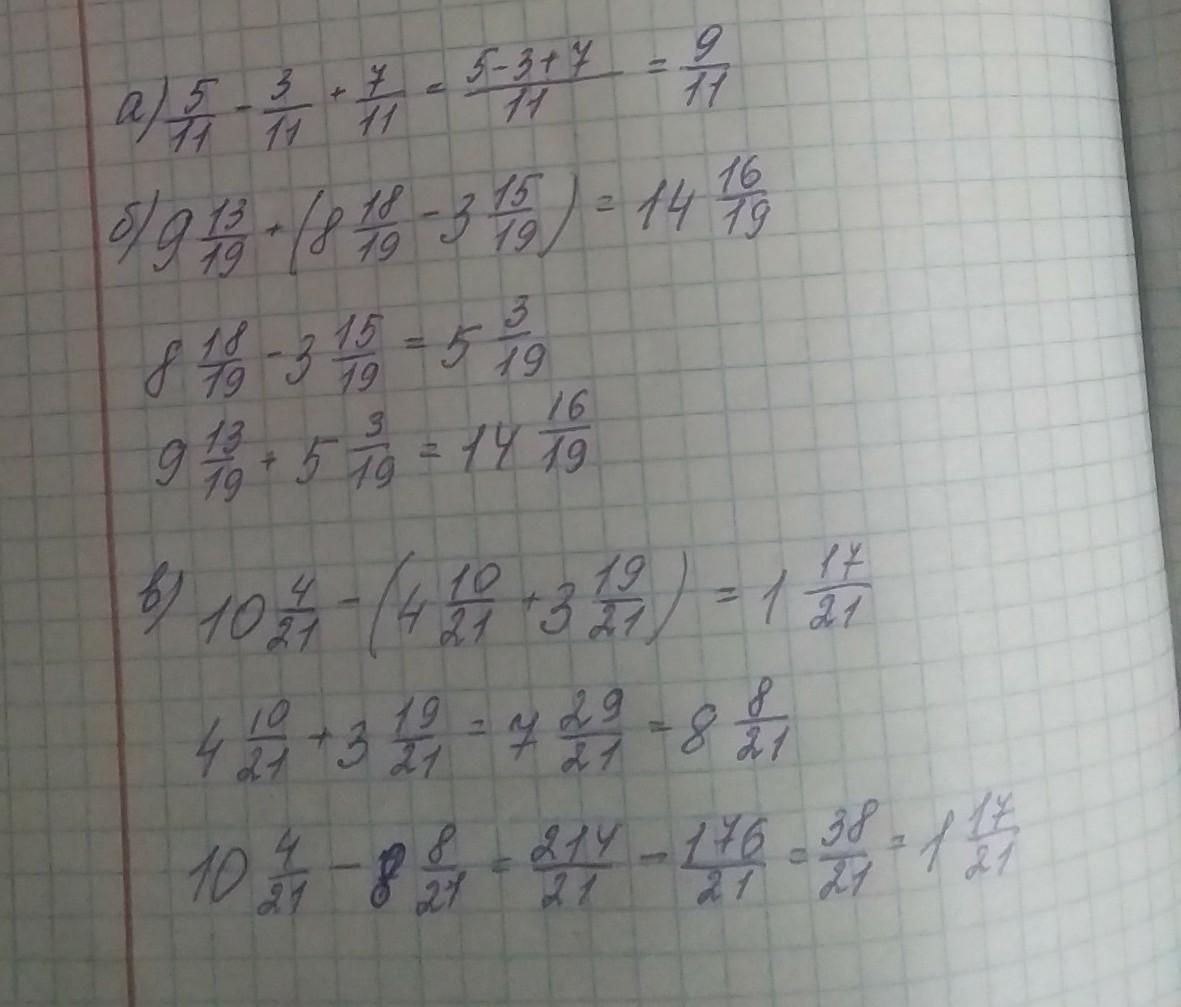 а) 5/11 - 3/11 + 7/11 = (5-3+7)/11 = 9/11
б) 9 13/19 + (8 18/19 - 3 15/19) = 14 16/19
8 18/19 - 3 15/19 = 5 3/19
9 13/19 + 5 3/19 = 14 16/19
в) 10 4/21 - (4 10/21 + 3 19/21) = 1 17/21
4 10/21 + 3 19/21 = 7 29/21 = 8 8/21
10 4/21 - 8 8/21 = 214/21 - 176/21 = 38/21 = 1 17/21